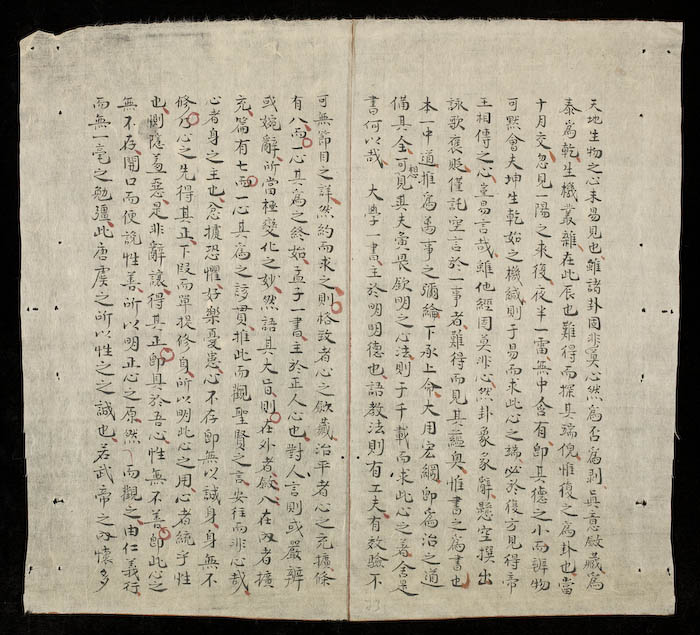 天地生物之心未易見也雖諸卦固非奠心然爲否爲剥眞意斂藏爲
泰爲乾生機叢雜在此辰也難得而探其端倪惟復之爲卦也當
十月交忽見一陽之來復夜半一雷無中含有即其德之小而辨物
可默會夫坤生乾始之機緘則于易而求此心之端必於復方見得帝
王相傳之心豈易言哉雖他經固莫非心然卦象彖辭懸空摸出
詠歌褒貶僅託空言於一事者難得而見其蘊奥惟書之爲書也
本一中道推爲萬事之彌綸下承上命大用宏綱即爲治之道
備其全可想見其夫寅畏欽明之心法則于千載而求此心之著舍是
書何以哉 大學一書主於明明德也語教法則有工夫有效驗不
可無節目之詳然約而求之則格致者心之斂藏治平者心之充擴條
有八而一心其爲之終始孟子一書主於正人心也對人言則或嚴辨
或婉辭所當極變化之妙然語其大旨則在外者斂入在内者擴
充篇有七而一心其爲之貫推此而觀聖賢之言安往而非心哉
心者身之主也忿懥恐懼好樂憂患心不存即無以誠身身無不
修乃心之先得其正下段而單提修身所以明此心之用心者統乎性
也惻隱羞惡是非辭讓得其正即具於吾心性無不善即此心之
無不存開口而便說性善所以明正心之原然而觀之由仁義行
而無一毫之勉彊此唐虞之所以性之之誠也若武帝之内懷多